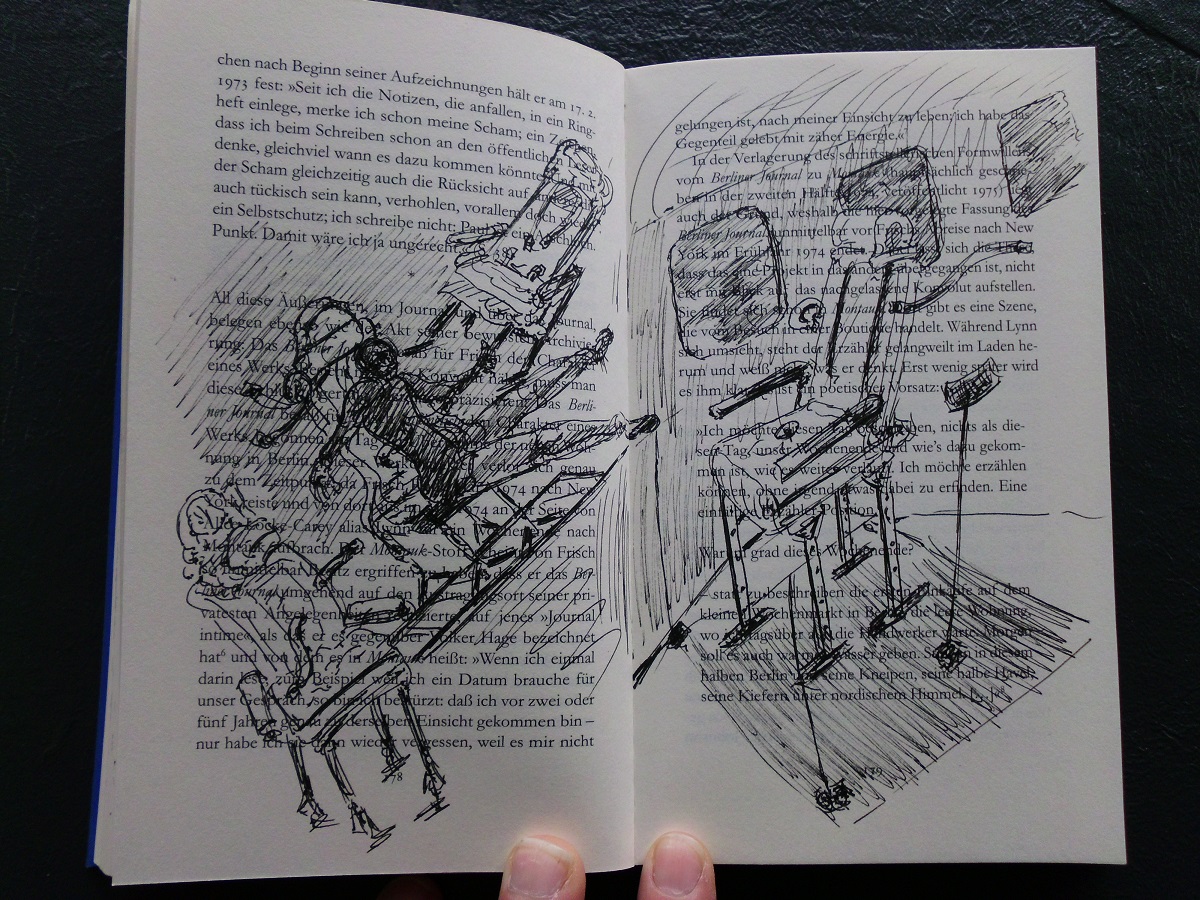 chen nach Beginn seiner Aufzeichnungen hält er am 17. 2.
1973 fest: »Seit ich die Notizen, die anfallen, in ein Ring-
heft einlege, merke ich schon meine Scham; ein
dass ich beim Schreiben schon an den öffentlichen Leser
denke, gleichviel wann es dazu kommen könnte. Und mit
der Scham gleichzeitig auch die Rücksicht auf andere, die
auch tückisch sein kann, verhohlen, vorallem doch wieder
ein Selbstschutz; ich schreibe nicht: Paul ist ein Arschloch.
Punkt. Damit wäre ich ja ungerecht.«
All diese Äußerungen, im Journal und über das Journal,
belegen ebenso wie der Akt seiner bewussten Archivie-
rung: Das Berliner für Frisch den Charakter
eines Werks. muss man
diese präzisieren: Das Berli-
ner Journal den Charakter eines
Werks. Begonnen am Tag der
nung in Berlin, dieses Werk verlor sich genau
zu dem Zeitpunkt, da Frisch im 1974 nach New
York reiste und von dort aus im 1974 an der Seite von
Alice Locke-Carey alias Lynn für ein Wochenende nach
Montauk aufbrach. Der Montauk-Stoff scheint von Frisch
so unmittelbar Besitz ergriffen zu haben, dass er das Ber-
liner Journal umgehend auf den Austragungsort seiner pri-
vatesten Angelegenheiten reduzierte, auf jenes »Journal
intime«, als das er es gegenüber Volker Hage bezeichnet
hat⁶ und von dem es in Montauk heißt: »Wenn ich einmal
darin lese, zum Beispiel weil ich ein Datum brauche für
unser Gespräch, so bin ich bestürzt: daß ich vor zwei oder
fünf Jahren genau zu derselben Einsicht gekommen bin –
nur habe ich sie dann wieder vergessen, weil es mir nicht
78
gelungen ist, nach meiner Einsicht zu leben; ich habe das
Gegenteil gelebt mit zäher Energie.«
In der Verlagerung des schriftstellerischen Formwillens
vom Berliner Journal zu Montauk (hauptsächlich geschrie-
ben in der zweiten Hälfte 1974, veröffentlicht 1975) liegt
auch der Grund, weshalb die hier vorgelegte Fassung des
Berliner Journal unmittelbar vor Frischs Abreise nach New
York im Frühjahr 1974 endet. lässt sich die These,
dass das eine Projekt in das andere übergegangen ist, nicht
erst mit Blick auf das nachgelassene Konvolut aufstellen.
Sie findet sich schon in Montauk. Dort gibt es eine Szene,
die vom Besuch in einer Boutique handelt. Während Lynn
sich umsieht, steht der Erzähler gelangweilt im Laden he-
rum und weiß nicht, was er denkt. Erst wenig später wird
es ihm klar: Es ist ein poetischer Vorsatz:
»Ich möchte diesen Tag beschreiben, nichts als die-
sen Tag, unser Wochenende und wie's dazu gekom-
men ist, wie es weiter verläuft. Ich möchte erzählen
können, ohne irgend etwas dabei zu erfinden. Eine
einfältige Erzähler-Position.
Warum grad dieses Wochenende?
– statt zu beschreiben die ersten Einkäufe auf dem
kleinen Wochenmarkt in Berlin, die leere Wohnung,
wo ich tagsüber auf die Handwerker warte. Morgen
soll es auch warmes Wasser geben. Sitzen in diesem
halben Berlin und seine Kneipen, seine halbe Havel,
seine Kiefern unter nordischem Himmel
179